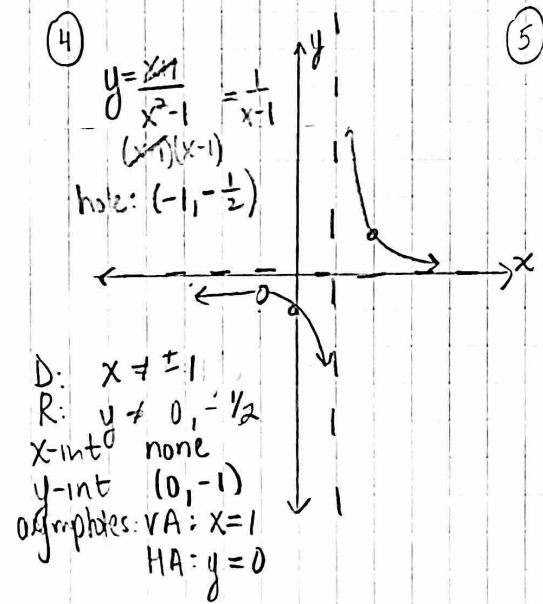 ④
⑤
y
y = x+1 / x²-1 = 1 / x-1
(x+1)(x-1)
hole: (-1, -1/2)
x
D: x ≠ ±1
R: y ≠ 0, -1/2
x-int none
y-int (0, -1)
asymptotes: VA: x=1
HA: y=0